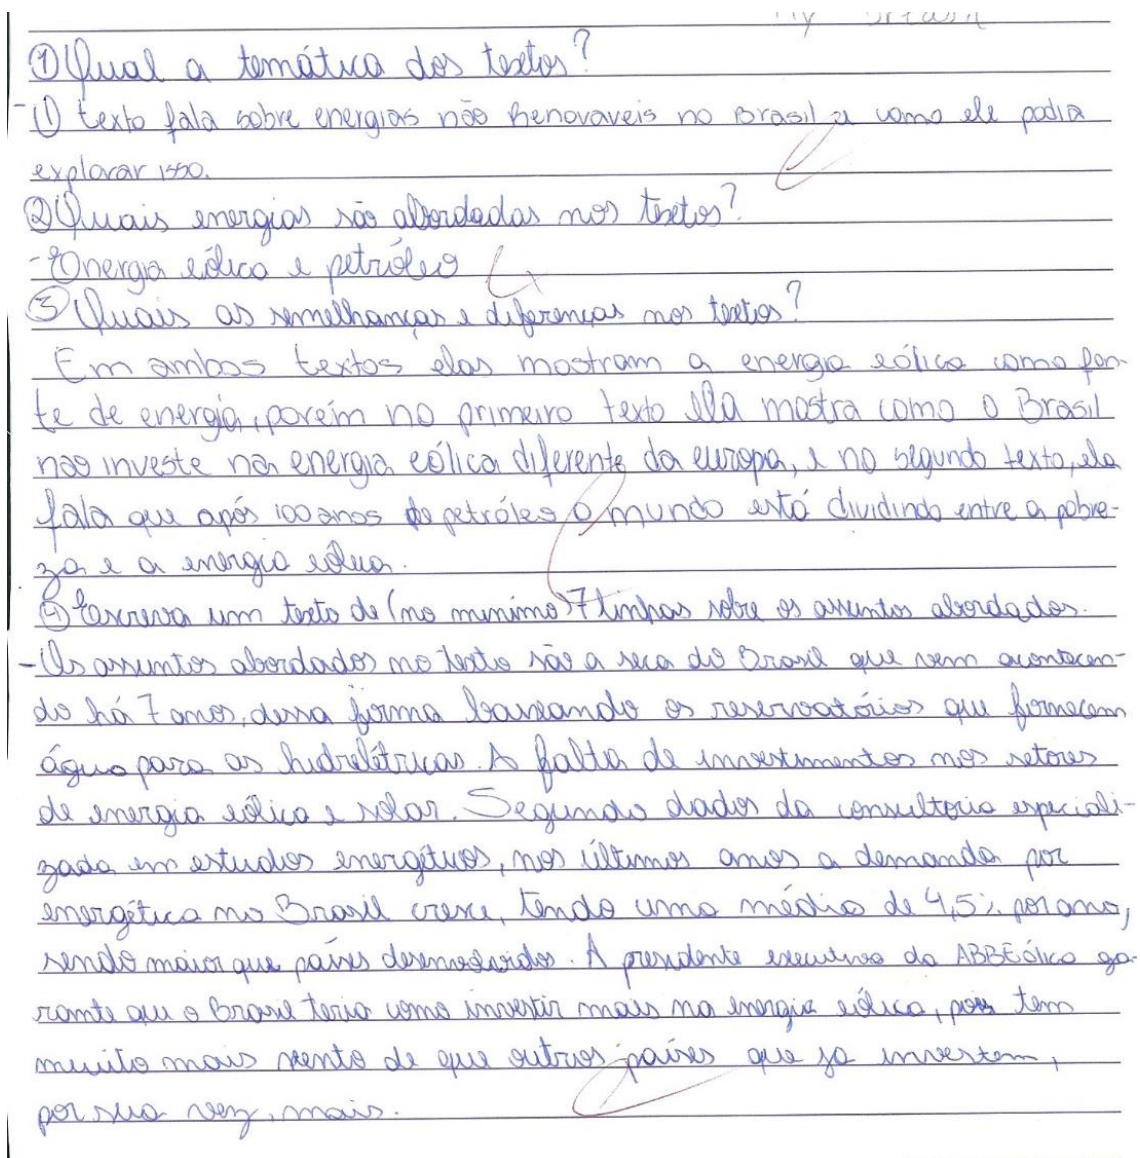 ① Qual a temática dos textos?
- O texto fala sobre energias não Renovaveis no Brasil e como ele podia
explorar isso.
② Quais energias são abordadas nos textos?
- Energia eólica e petróleo
③ Quais as semelhanças e diferenças nos textos?
Em ambos textos elas mostram a energia eólica como fon-
te de energia, porém no primeiro texto ela mostra como o Brasil
nao investe na energia eólica diferente da europa, e no segundo texto, ela
fala que após 100 anos de petróleo o mundo está dividindo entre a pobre-
za e a energia eólica.
④ Escreva um texto de (no minimo) 7 linhas sobre os assuntos abordados.
- Os assuntos abordados no texto são a seca do Brasil que vem acontecen-
do há 7 anos, dessa forma baixando os reservoatórios que fornecem
água para as hidrelétricas. A falta de investimentos nos setores
de energia eólica e solar. Segundo dados da consultoria especiali-
zada em estudos energéticos, nos últimos anos a demanda por
energética no Brasil cresce, tendo uma média de 4,5% por ano,
sendo maior que países desenvolvidos. A presidente executiva da ABBEólica ga-
rante que o Brasil teria como investir mais na energia eólica, pois tem
muito mais vento de que outros países que ja investem,
por sua vez, mais.